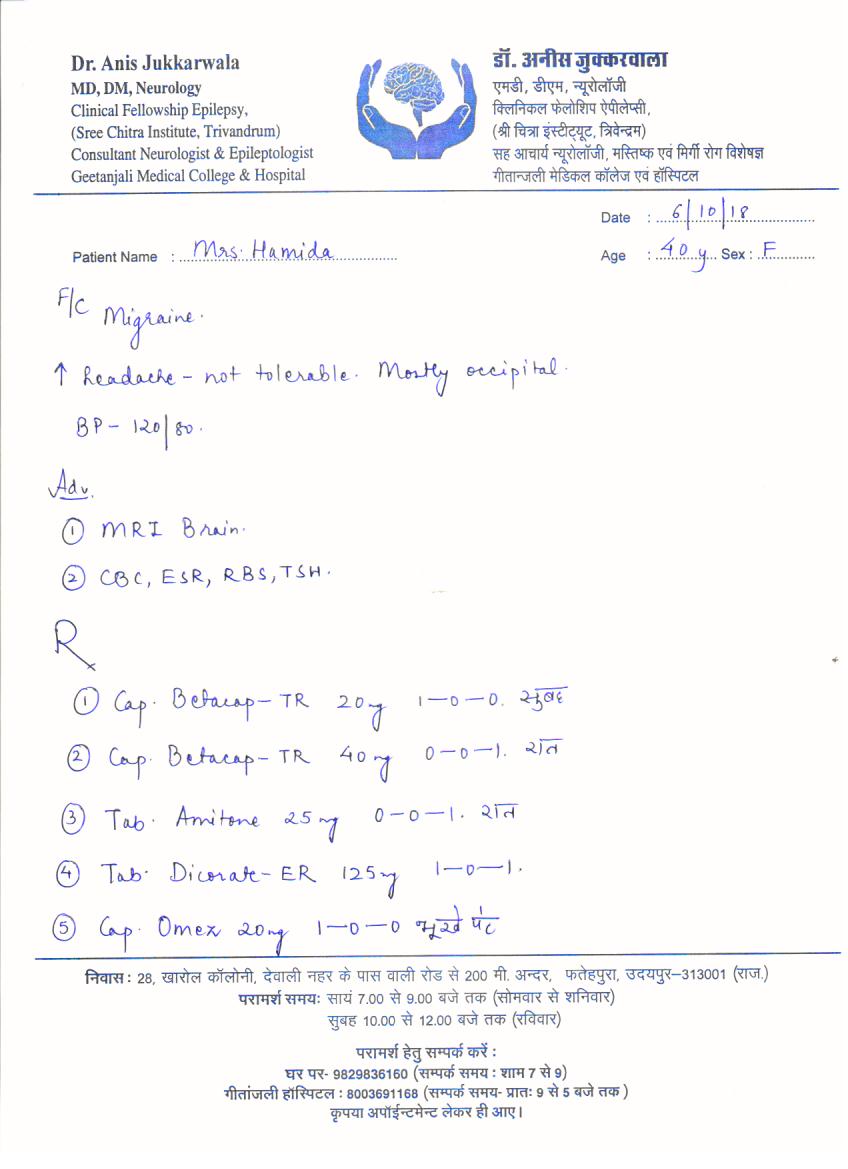 Dr. Anis Jukkarwala
MD, DM, Neurology
Clinical Fellowship Epilepsy,
(Sree Chitra Institute, Trivandrum)
Consultant Neurologist & Epileptologist
Geetanjali Medical College & Hospital
डॉ. अनीस जुक्करवाला
एमडी, डीएम, न्यूरोलॉजी
क्लिनिकल फेलोशिप ऐपीलेप्सी,
(श्री चित्रा इंस्टीट्यूट, त्रिवेन्द्रम)
सह आचार्य न्यूरोलॉजी, मस्तिष्क एवं मिर्गी रोग विशेषज्ञ
गीतान्जली मेडिकल कॉलेज एवं हॉस्पिटल
Date : 6/10/18
Patient Name : Mrs. Hamida Age : 40 y Sex : F
F/C Migraine.
↑ headache - not tolerable. Mostly occipital.
BP - 120/80.
Adv.
① MRI Brain.
② CBC, ESR, RBS, TSH.
R
① Cap. Betacap-TR 20mg 1-0-0. सुबह
② Cap. Betacap-TR 40mg 0-0-1. रात
③ Tab. Amitone 25mg 0-0-1. रात
④ Tab. Dicorate-ER 125mg 1-0-1.
⑤ Cap. Omez 20mg 1-0-0 भूखे पेट
निवास: 28, खारोल कॉलोनी, देवाली नहर के पास वाली रोड से 200 मी. अन्दर, फतेहपुरा, उदयपुर–313001 (राज.)
परामर्श समय: सायं 7.00 से 9.00 बजे तक (सोमवार से शनिवार)
सुबह 10.00 से 12.00 बजे तक (रविवार)
परामर्श हेतु सम्पर्क करें :
घर पर- 9829836160 (सम्पर्क समय : शाम 7 से 9)
गीतांजली हॉस्पिटल : 8003691168 (सम्पर्क समय- प्रातः 9 से 5 बजे तक )
कृपया अपॉईन्टमेन्ट लेकर ही आए।